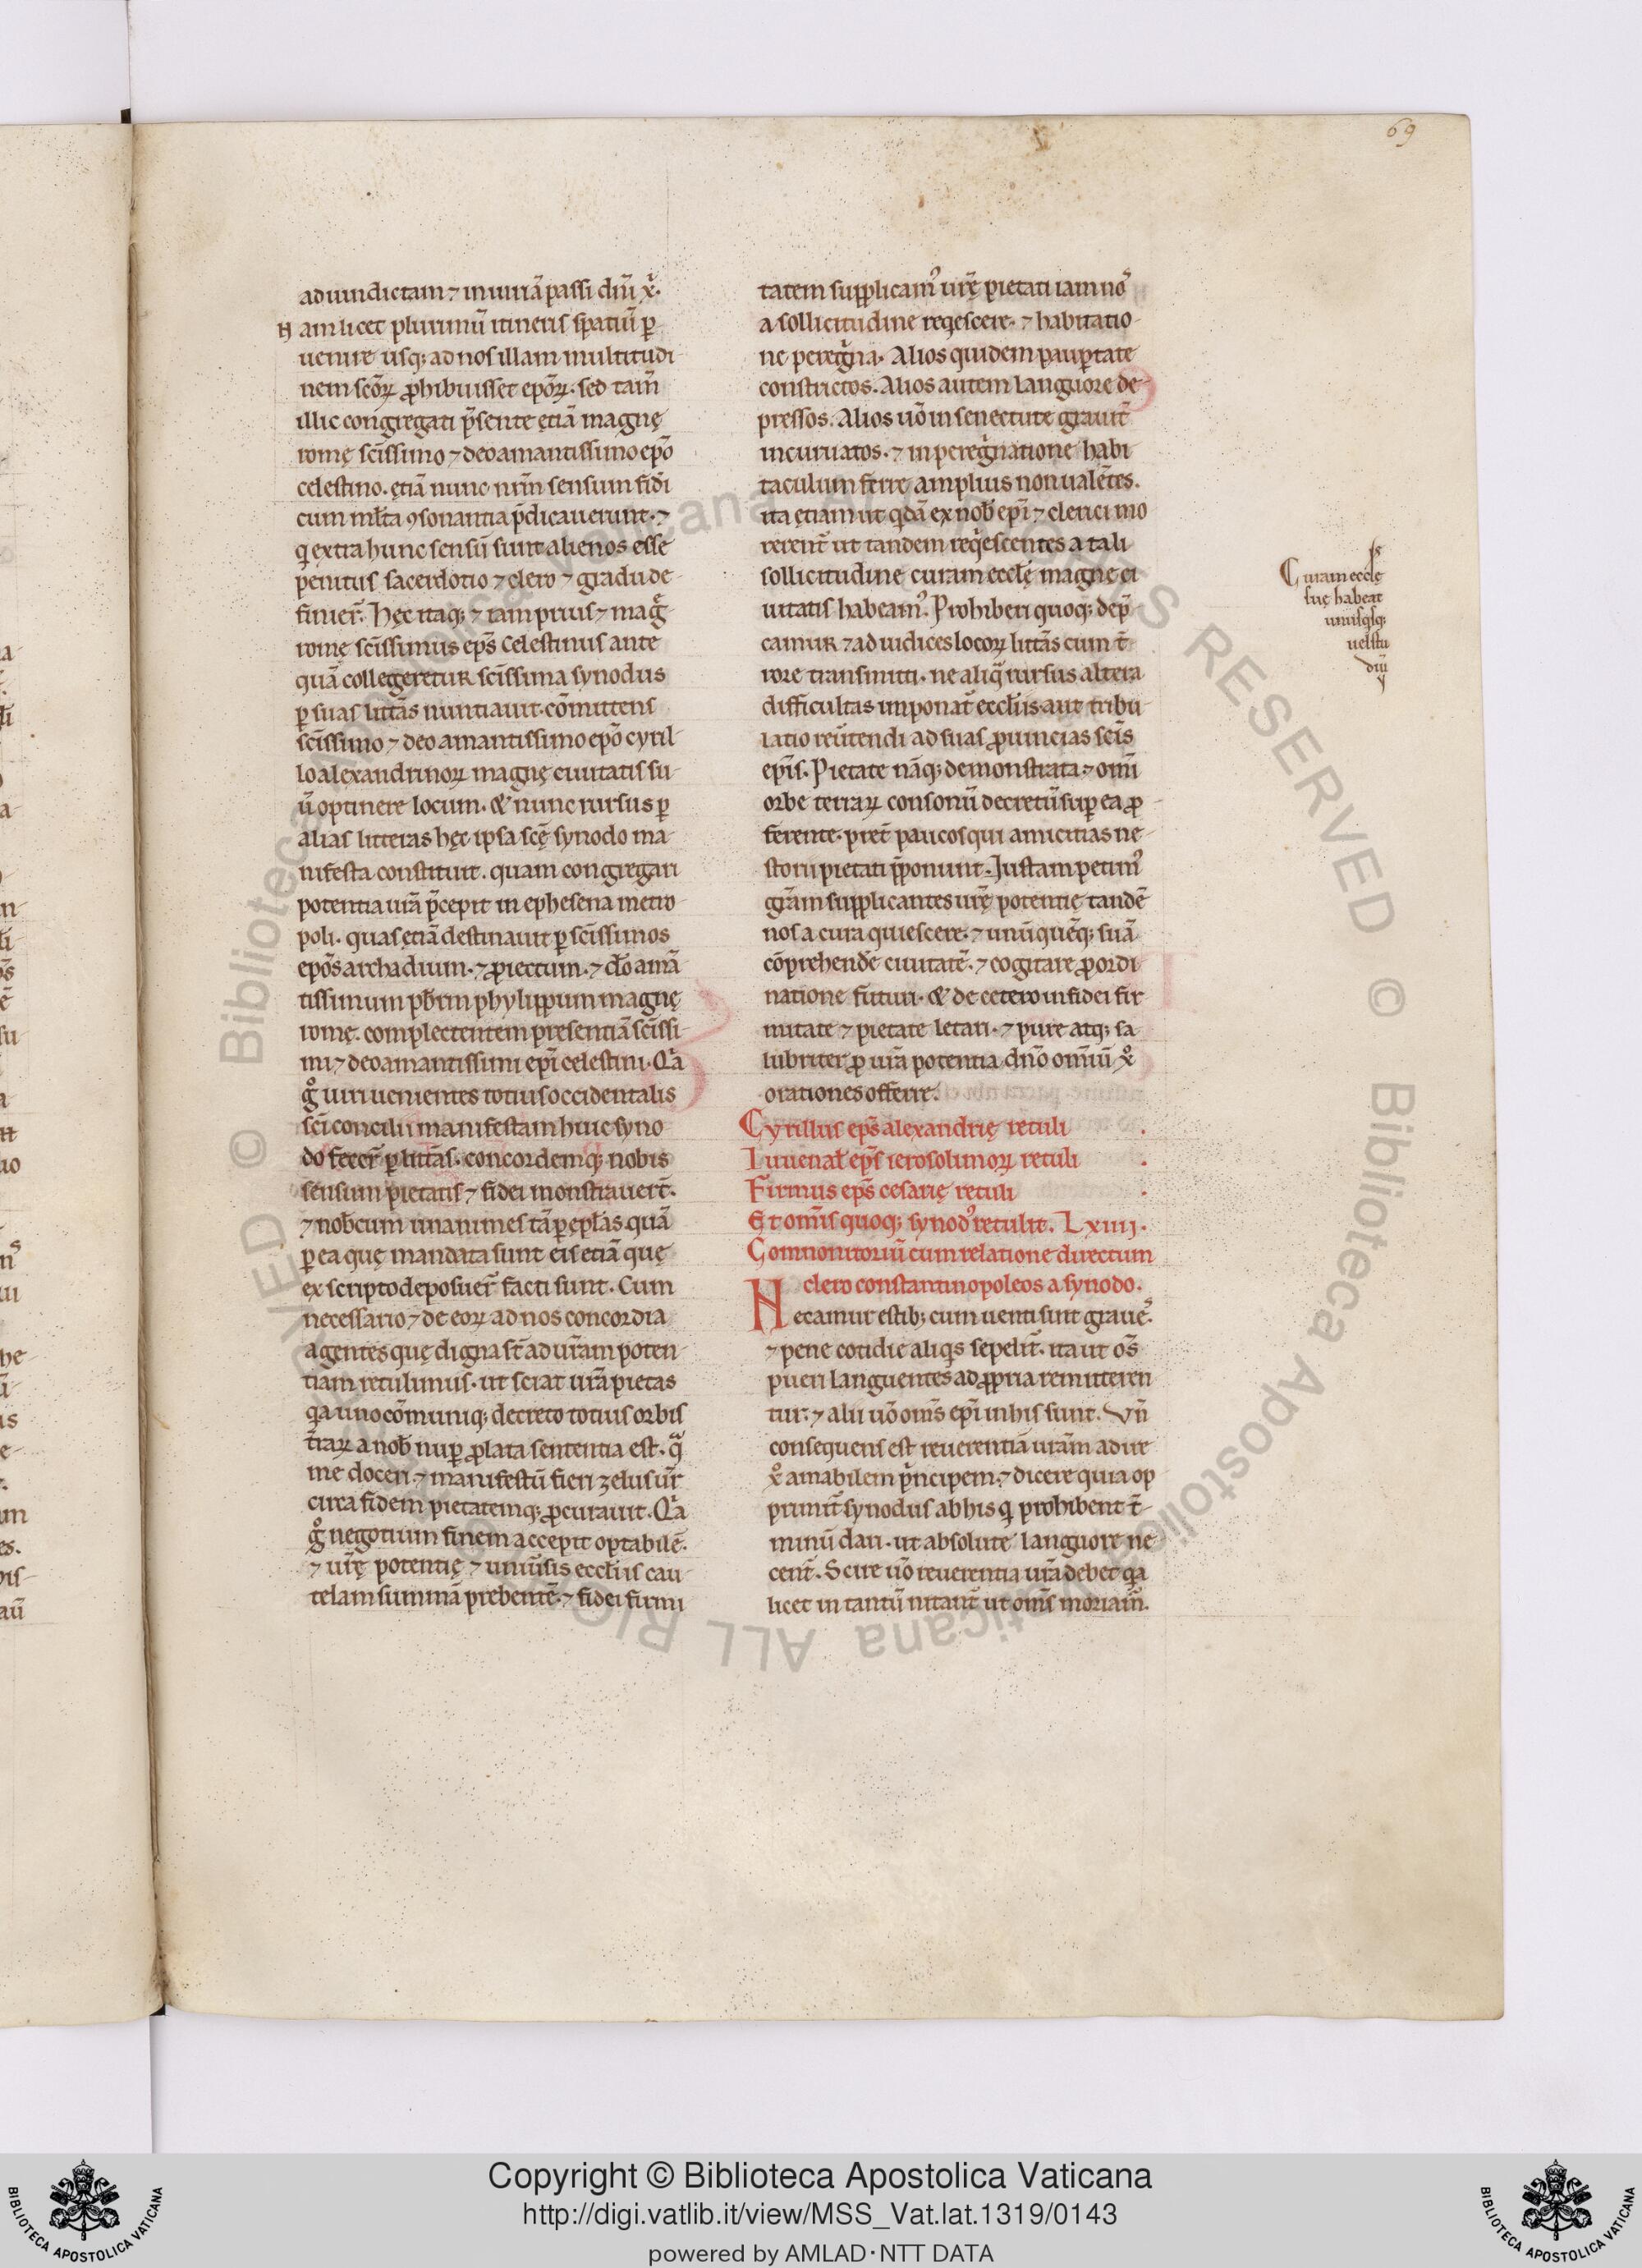 69
ad uindictam ⁊ iniuriā passi dn̄i x̄.
Nam licet plurimū itineris spatiū ꝑ
uenire usq; ad nos illam multitudi
nem sc̄oꝝ ꝓhibuisset ep̄oꝝ. sed tam̄
illic congregati p̄sente etiā magnę
romę sc̄issimo ⁊ deo amantissimo ep̄o
celestino. etiā nunc nr̄m sensum fidei
cum ml̄ta ꝯsonantia p̄dicauerunt. ⁊
q̇ extra hunc sensū sunt alienos esse
penitus sacerdotio ⁊ clero ⁊ gradu de
finier̄. Hęc itaq; ⁊ iam prius ⁊ mag̃
romę sc̄issimus ep̄s celestinus ante
quā collegeretur sc̄issima synodus
ꝑ suas litt̄as nuntiauit. cōmittens
sc̄issimo ⁊ deo amantissimo ep̄o cyril
lo alexandrinoꝝ magnę ciuitatis su
ū optinere locum. & nunc rursus ꝑ
alias litteras hęc ipsa sc̄ę synodo ma
nifesta constituit. quam congregari
potentia ur̄a p̄cepit in ephesena metro
poli. quas etiā destinauit ꝑ sc̄issimos
ep̄os archadium. ⁊ ꝓiectum. ⁊ dō amā
tissimum pb̄rm phylippum magnę
romę. complectentem presentiā sc̄issi
mi ⁊ deo amantissimi ep̄i celestini. Q̄a
g̊ uiri uenientes totius occidentalis
sc̄i concilii manifestam huic syno
do fecer̄ ꝑ litt̄as. concordemq; nobis
sensum pietatis ⁊ fidei monstrauer̄t.
⁊ nob̄cum unanimes tā ꝑ ep̄las quā
ꝑ ea quę mandata sunt eis etiā quę
ex scripto deposuer̄ facti sunt. Cum
necessario ⁊ de eoꝝ ad nos concordia
agentes quę digna st̄ ad ur̄am poten
tiam retulimus. ut sciat ur̄a pietas
q̇a uno cōmuniq; decreto totius orbis
t̄raꝝ a nob̄ nuꝑ ꝓlata sententia est. q̄
me doceri ⁊ manifestū fieri zelus ur̄
circa fidem pietatemq; ꝓcurauit. Q̄a
g̊ negotium finem accepit optabilē.
⁊ ur̄ę potentię ⁊ uniūsis eccl̄iis cau
telam summā prebentē. ⁊ fidei firmi
tatem supplicam' ur̄ę pietati iam nō
a sollicitudine reqescere. ⁊ habitatio
ne peregn̄a. Alios quidem pauꝑtate
constrictos. Alios autem languore de
pressos. Alios uō in senectute grauit̄
incuruatos. ⁊ in peregn̄atione habi
taculum ferre amplius non ualētes.
ita etiam ut q̇dā ex nob̄ ep̄i ⁊ clerici mo
rerent̄ ut tandem reqescentes a tali
sollicitudine curam eccl̄ę magne ci
uitatis habeam'. Prohiberi quoq; dep̄
camur ⁊ ad iudices locoꝝ litt̄as cum t̄
rore transmitti. ne aliq̄ rursus altera
difficultas imponat̄ eccl̄iis aut tribu
latio reūtendi ad suas ꝓuincias sc̄is
ep̄is. Pietate nāq; demonstrata ⁊ om̄i
orbe terraꝝ consonū decretū suꝑ ea ꝓ
ferente. pret̄ paucos qui amicitias ne
storii pietati p̄ponunt. Iustam petim'
gr̄am supplicantes ur̄ę potentię tandē
nos a cura quiescere. ⁊ unū quēq; suā
cōprehende ciuitatē. ⁊ cogitare ꝓ ordi
natione futuri. & de cetero in fidei fir
mitate ⁊ pietate letari. ⁊ pure atq; sa
lubriter ꝓ ur̄a potentia dn̄o om̄iū x̊
orationes offerre.
Cyrillus ep̄s alexandrię retuli
Iuuenal̄ ep̄s ierosolimoꝝ retuli
Firmus ep̄s cesarię retuli
Et om̄is quoq; synod' retulit. Lxiiij.
Commonitoriū cum relatione directum
clero constantinopoleos a synodo.
Necamur estib; cum uenti sint graues.
⁊ pene cotidie aliq̇s sepelit̄. ita ut om̄s
pueri languentes ad ꝓpria remitteren
tur. ⁊ alii uō om̄s ep̄i in his sunt. Vn̄
consequens est reuerentiā ur̄am adire
x̊ amabilem p̄ncipem. ⁊ dicere quia op
primit̄ synodus ab his q̇ prohibent t̄
minū dari. ut absolute languore ne
cent̄. Scire uō reuerentia ur̄a debet q̇a
licet in tantū nitant̄ ut om̄s moriam̄.
Curam eccl̄ę
suę habeat
unusq̇sq;
uel stu
diū
Copyright © Biblioteca Apostolica Vaticana
http://digi.vatlib.it/view/MSS_Vat.lat.1319/0143
powered by AMLAD·NTT DATA